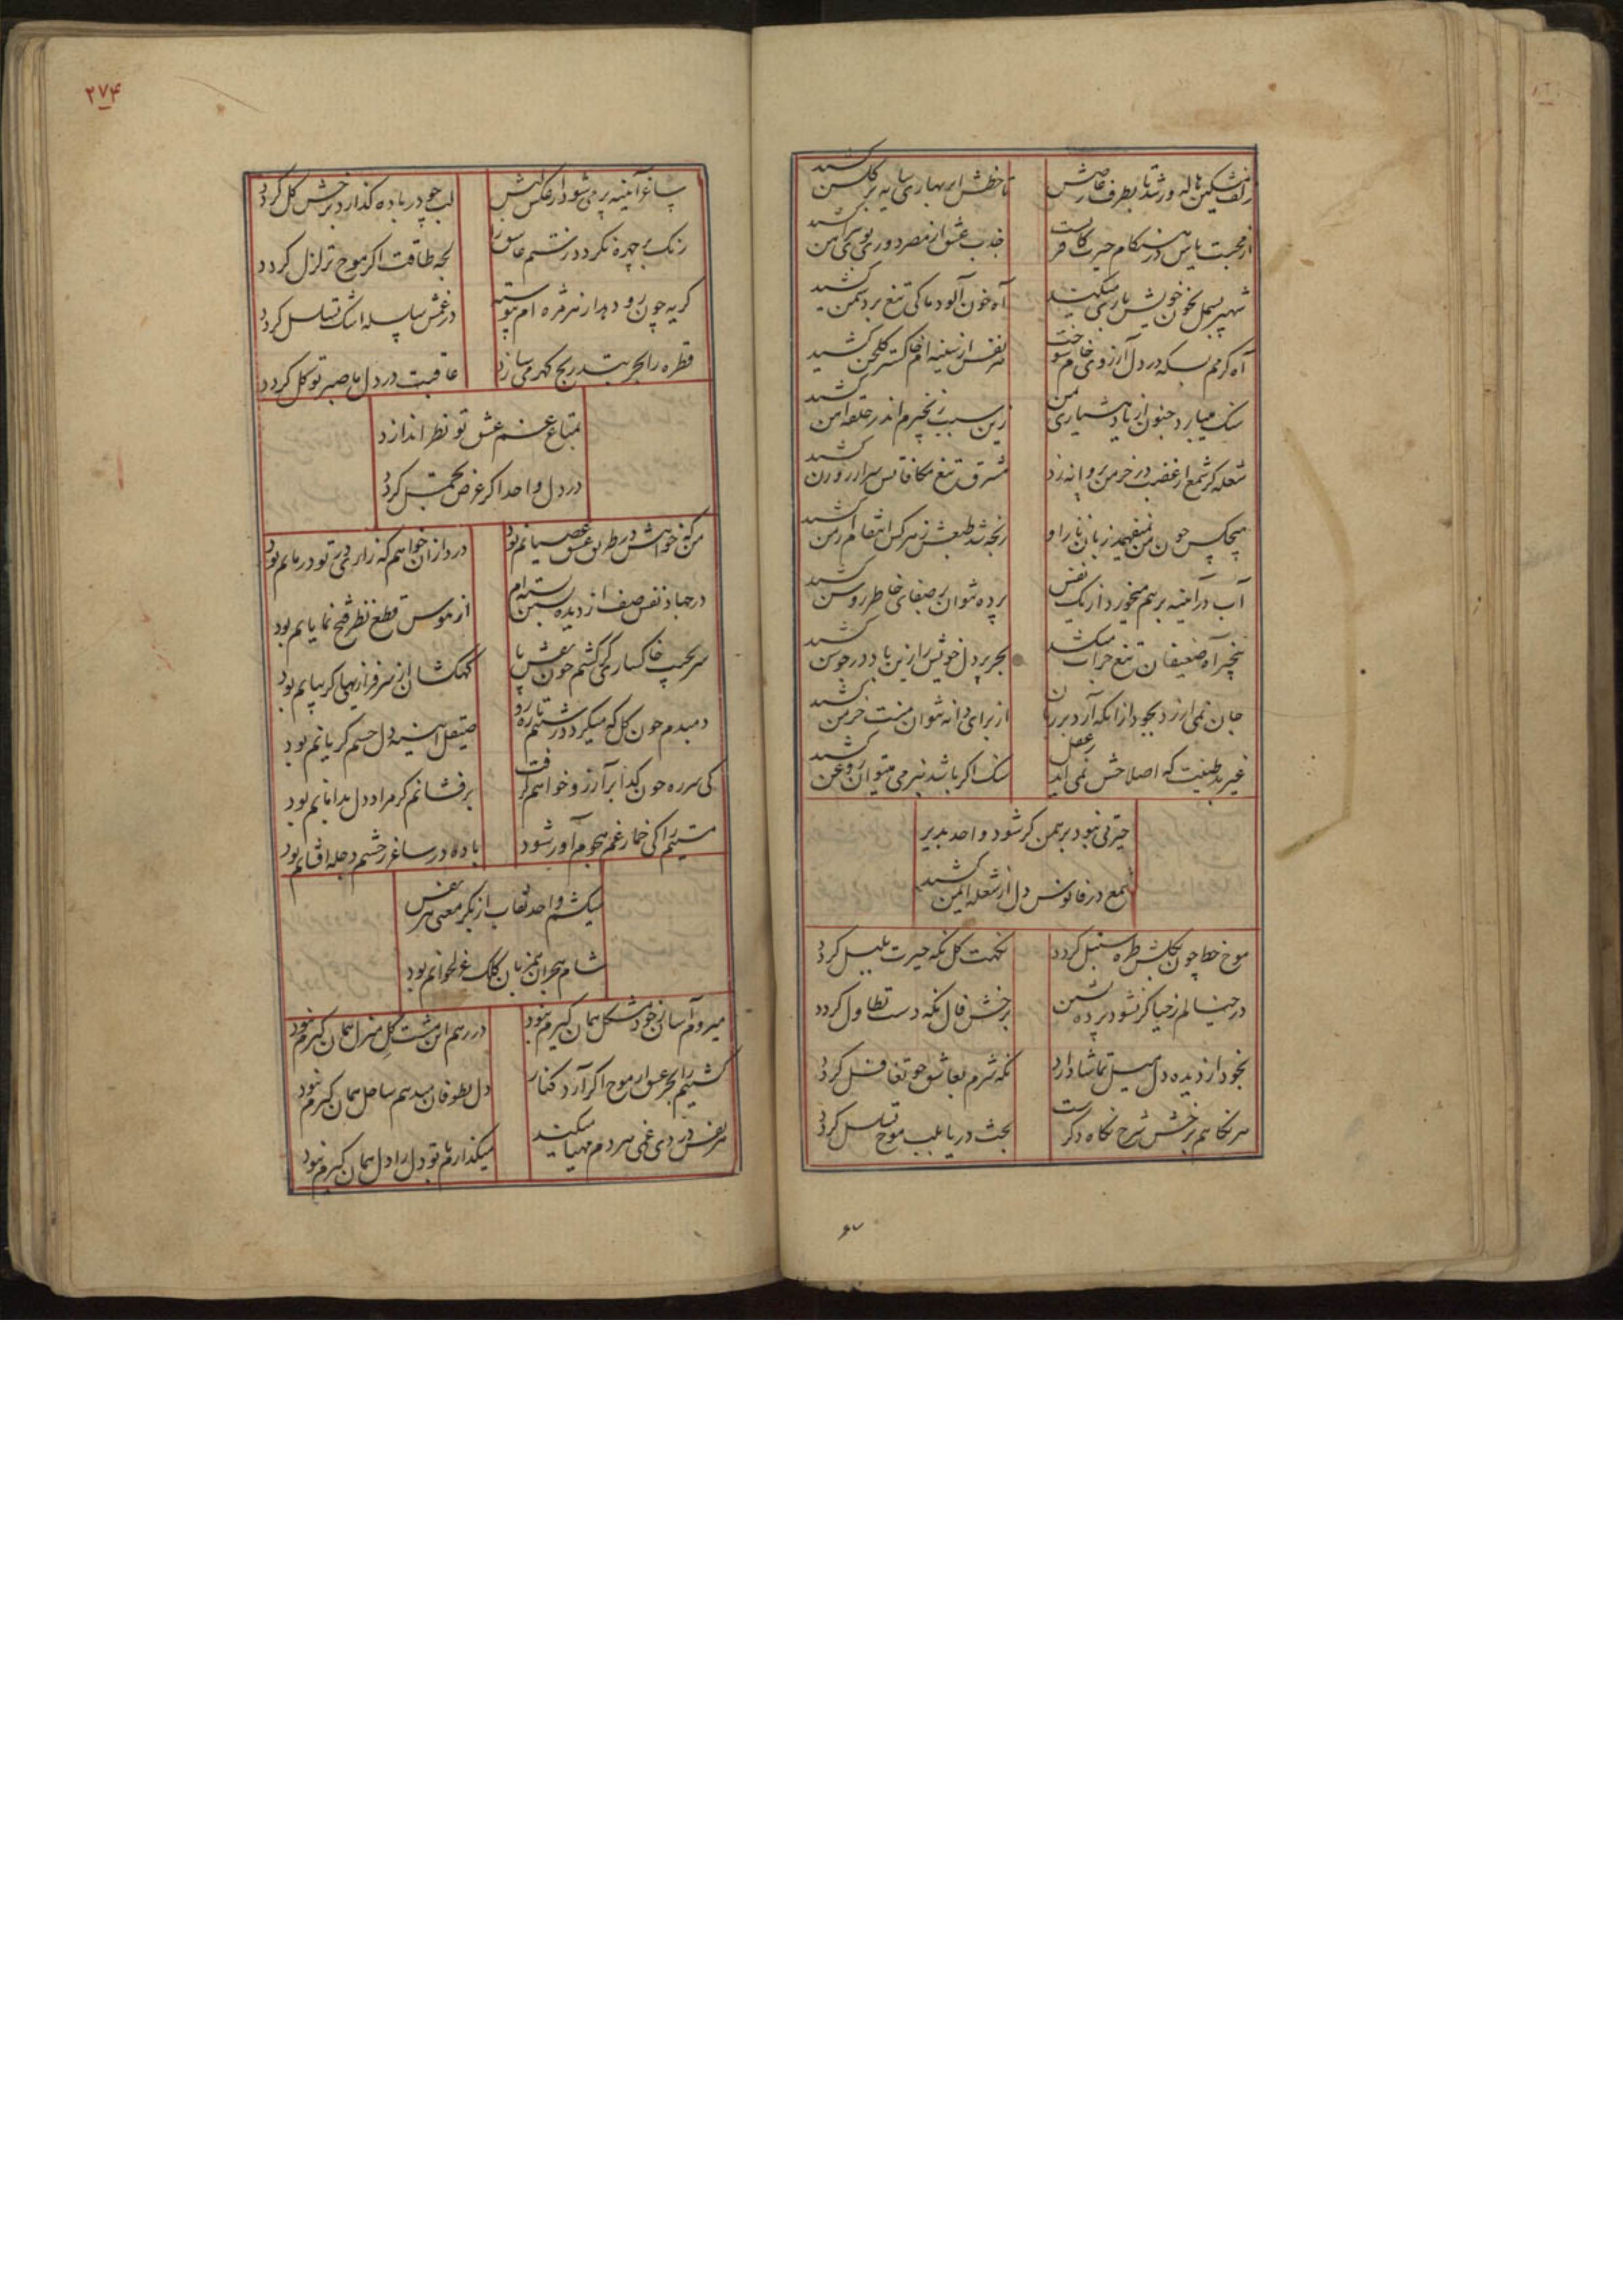 زلف مشکین هاله ور شد تا بطرف عارضش
تا خطش ابر بهاری سایه بر گلشن کشید
از محبت یاس در هنگام حیرت کافریست
جذب عشق از مصر دوری بوی پیراهن کشید
شهپر بسمل بخون خویش یاری میکند
آه خون آلود ما کی تیغ بر دشمن کشید
آه گرمم بسکه در دل آرزوی خام سوخت
هر نفس از سینه ام خاکستر گلخن کشید
سنک میبارد جنون از یاد هشیاری بمن
زین سبب زنجیرم اندر حلقه آهن کشید
شعله گر شمع از غضب در خرمن پروانه زد
مشرق تیغ مکافاتس سر از روزن کشید
هیچکس چون من نمیفهمد زبان ناز او
رنجه شد طبعش ز هر کس انتقام از من کشید
آب در آئینه برهم میخورد از یک نفس
پرده نتوان بر صفای خاطر روشن کشید
پنجه آه ضعیفان تیغ جراب میکشد
بحر بر دل خویش را زین باد در جوشن کشید
جان نمی ارزد بجود از انکه آرد بر زبان
از برای دانه نتوان منت خرمن کشید
غیر بد طینت که اصلاحش نمی آید ز عقل
سنک اکر باشد بنرمی میتوان روغن کشید
حیرتی نبود برهمن گر شود واحد پذیر
شمع در فانوس دل از شعله ایمن کشید
موج خط چون بگلش طره سنبل گردد
نکهت گل نگه حیرت بلبل گردد
در خیالم ز حیا گر نشود پرده نشین
بر رخش فال نگه دست تطاول گردد
بخود از دیده دل سیل تماشا دارد
نگه شرم بعاشق چو تغافل گردد
هر نگاهم برخش شرح نگاه دگرست
بحث دریا بلب موج تسلسل گردد
۲۷۴
ساغر آئینه پر می شود از عکس لبش
لب چو در باده گذارد برخش گل گردد
رنک بر چهره نگردد ز تنم عاشق را
لجه طاقت اگر موج تزلزل گردد
گریه چون رو دهد از هر مژه ام پیوسته
در غمش سلسله اشک تسلسل گردد
قطره را بحر بتدریج گهر می سازد
عاقبت درد دل ما صبر توکل گردد
بمتاع غم عشق تو نظر اندازد
درد دل واحد اگر عرض تجمل گردد
من که خواهش در طریق عشق عصیانم بود
درد ازان خواهم که زاری در تو درمانم بود
در جهاد نفس صف از دیده بستن بسته ام
از هوس قطع نظر فتح نمایانم بود
سر بجیب خاکساری گر کشم چون نقش پا
کهکشان از سرفرازیهای گریبانم بود
دمبدم چون گل که میگردد ز شبنم تازه رو
صیقل آئینه دل چشم گریانم بود
کی سر ره چون گدا بر آرزو خواهم گرفت
برفشانم گر مراد دل بدامانم بود
مستیم را کی خمار غم هجوم آور شود
باده در ساغر ز چشم دجله افشانم بود
میکشم واحد نقاب از بکر معنی هر نفس
شام هجران همزبان کلک غزلخوانم بود
میروم آسان ز خود مشکل همان گیرم نبود
در رهم این مشت گل منزل همان گیرم نبود
کشتیم را بحر عشق ار موج اگر آرد کنار
دل بطوفان میدهم ساحل همان گیرم نبود
هر نفس درد دی غمی هر دم مهیا میکند
میگذارم با تو دل را دل همان گیرم نبود